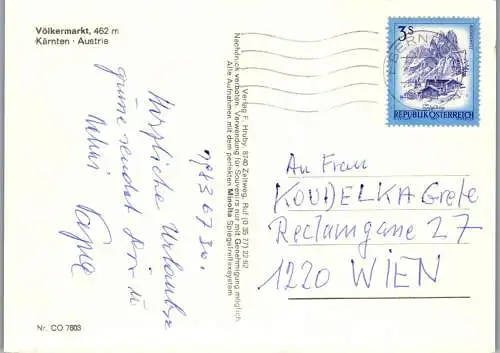 Völkermarkt, 462 m
Kärnten · Austria
Herzliche Urlaubs
grüsse sendet Dir u.
Verlag F. Hruby, 8740 Zeltweg, Ruf (0 35 77) 22 62
Nachdruck verboten. Verwendung für Souvenirs nur mit Genehmigung möglich.
Alle Aufnahmen mit dem perfekten Minolta Spiegelreflexsystem
3s
REPUBLIK ÖSTERREICH
An Frau
KOUDELKA Grete
Reclamgasse 27
1220 WIEN
Nr. CO 7603